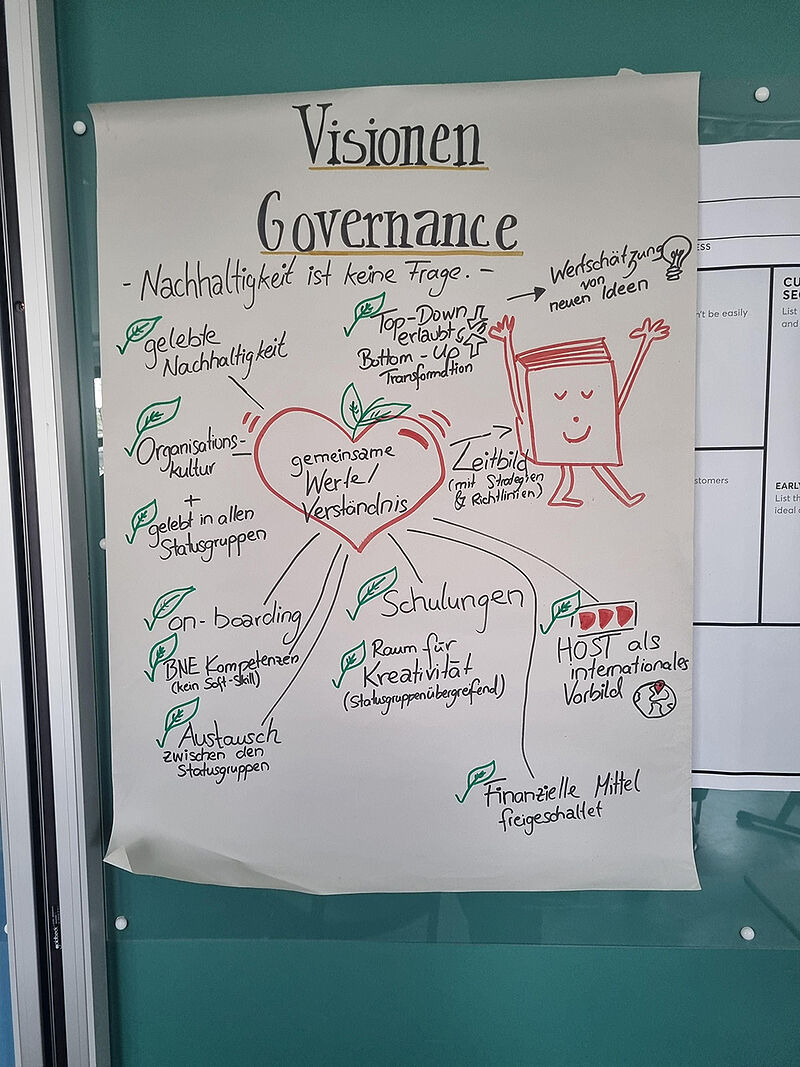 Visionen
Governance
- Nachhaltigkeit ist keine Frage. -
Wertschätzung
von
neuen Ideen
gelebte
Nachhaltigkeit
Top-Down
erlaubt
Bottom-Up
Transformation
Organisations-
kultur
+
gelebt in allen
Statusgruppen
gemeinsame
Werte/
Verständnis
Leitbild
(mit Strategien
& Richtlinien)
on-boarding
BNE Kompetenzen
(kein Soft-Skill)
Austausch
zwischen den
Statusgruppen
Schulungen
Raum für
Kreativität
(Statusgruppenübergreifend)
HOST als
internationales
Vorbild
Finanzielle Mittel
freigeschaltet
ESS
't be easily
CU
SE
List
and
stomers
EARLY
List th
ideal